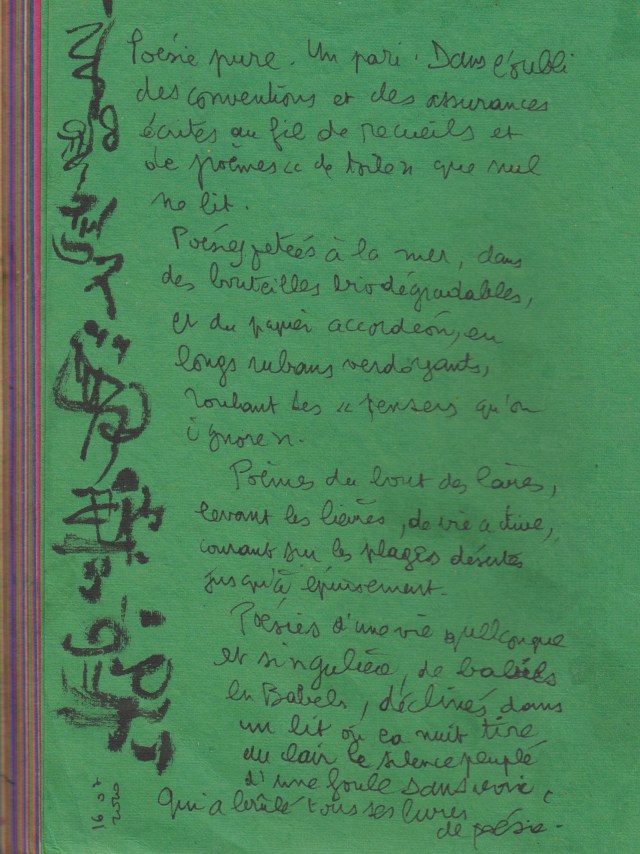 Poésie pure. Un pari. Dans l'oubli
des conventions et des assurances
écrites au fil de recueils et
de poèmes « de toile » que nul
ne lit.
Poésies jetées à la mer, dans
des bouteilles biodégradables,
et du papier accordéon, en
longs rubans verdoyants,
roulant les « pensers qu'on
ignore ».
Poèmes du bout des lèvres,
levant les lièvres, de vie active,
courant sur les plages désertes
jusqu'à épuisement.
Poésies d'une vie quelconque
et singulière, de
en Babels, déclinés dans
un lit où la nuit tire
au clair le silence peuplé
d'une foule sans voix,
qui a brûlé tous ses livres
de poésie.
16 07
2020